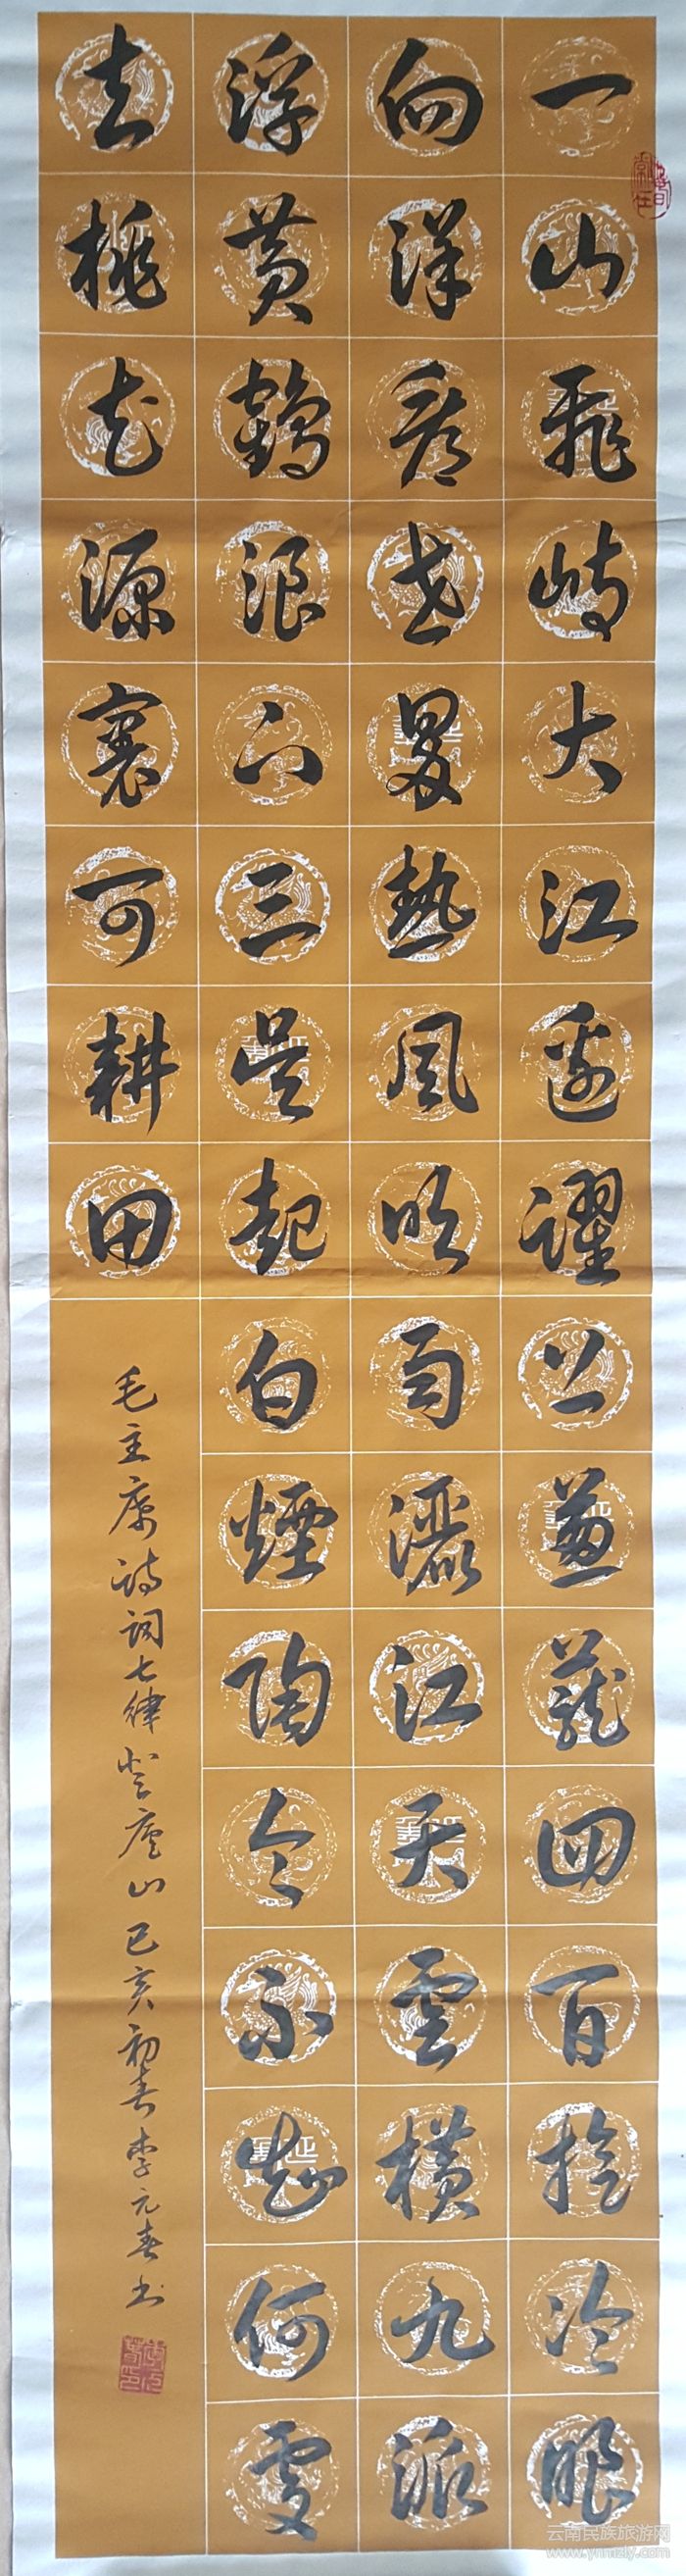 一山飛峙大江邊躍上葱蘢四百旋冷眼
向洋看世界熱風吹雨灑江天雲橫九派
浮黄鶴浪下三吴起白煙陶令不知何處
去桃花源裏可耕田
毛主席詩詞七律登廬山己亥初春李元春书
云南民族旅游网
www.ynmzly.com